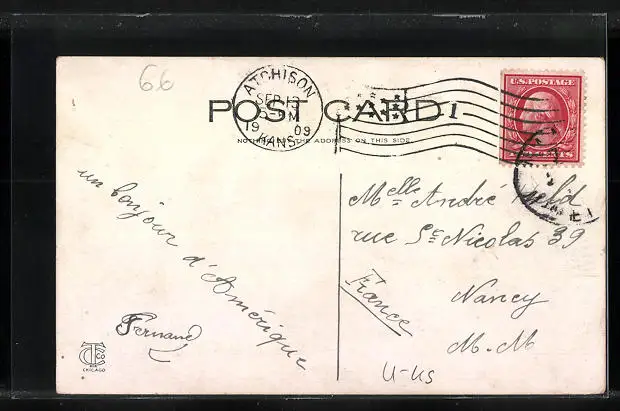 66
ATCHISON
SEP 13
M
1909
KANS.
POST CARD
1
NOTHING BUT THE ADDRESS ON THIS SIDE
U.S. POSTAGE
CENTS
un bonjour d'Amérique
Fernand
Melle André
rue St Nicolas 39
Nancy
M.M
France
U-KS
CHICAGO